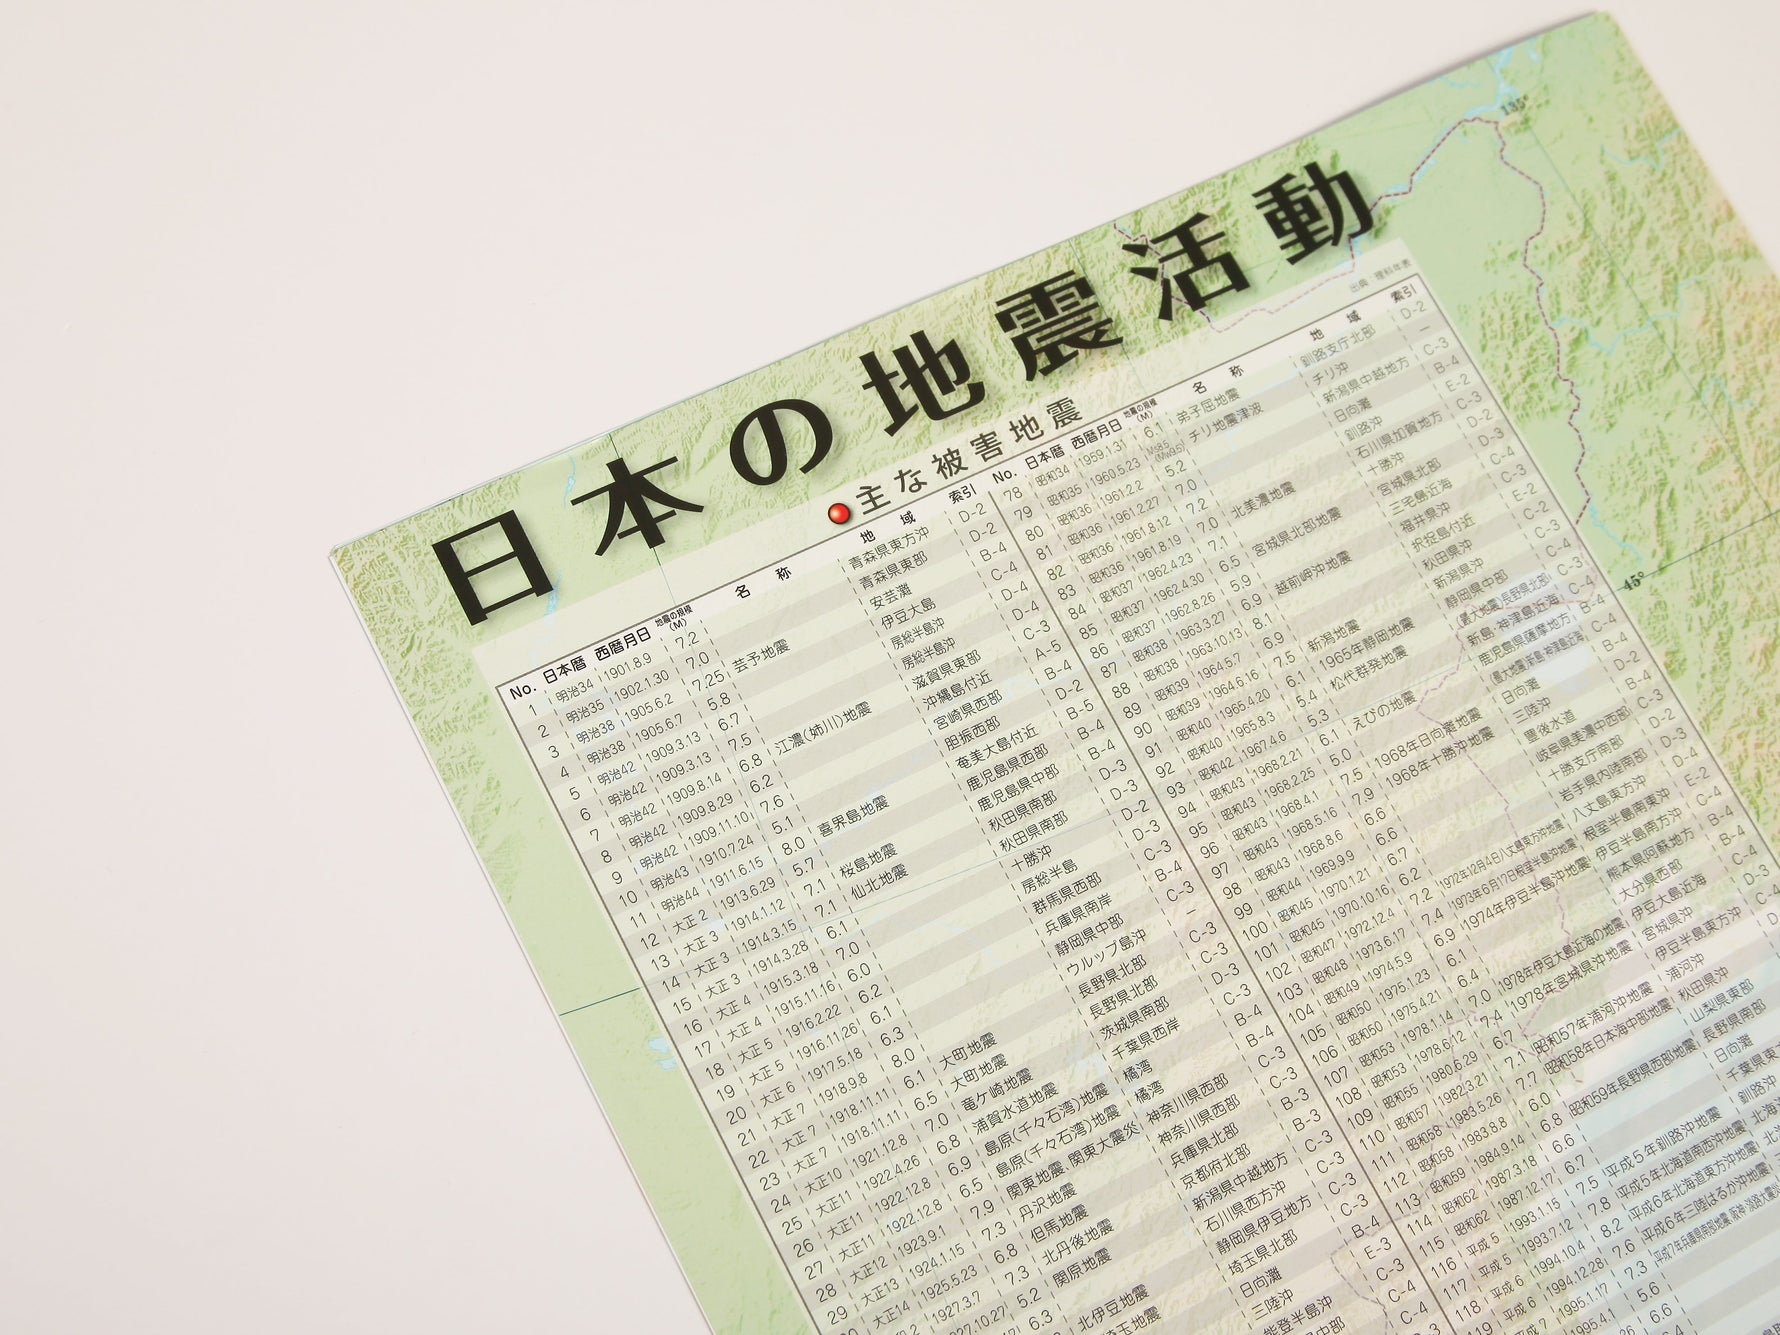 日本の地震活動
主な被害地震
出典:理科年表
No. 日本暦 西暦月日 地震の規模(M) 名称 地域 索引
1 明治34 1901.8.9 7.2 青森県東方沖 D-2
2 明治35 1902.1.30 7.0 青森県東部 D-2
3 明治38 1905.6.2 7.25 芸予地震 安芸灘 B-4
4 明治38 1905.6.7 5.8 伊豆大島 C-4
5 明治42 1909.3.13 6.7 房総半島沖 D-4
6 明治42 1909.3.13 7.5 房総半島沖 D-4
7 明治42 1909.8.14 6.8 江濃(姉川)地震 滋賀県東部 C-3
8 明治42 1909.8.29 6.2 沖縄島付近 A-5
9 明治42 1909.11.10 7.6 宮崎県西部 B-4
10 明治43 1910.7.24 5.1 胆振西部 D-2
11 明治44 1911.6.15 8.0 喜界島地震 奄美大島付近 B-5
12 大正2 1913.6.29 5.7 鹿児島県西部 B-4
13 大正3 1914.1.12 7.1 桜島地震 鹿児島県中部 B-4
14 大正3 1914.3.15 7.1 仙北地震 秋田県南部 D-3
15 大正3 1914.3.28 6.1 秋田県南部 D-3
16 大正4 1915.3.18 7.0 十勝沖 D-2
17 大正4 1915.11.16 6.0 房総半島 D-3
18 大正5 1916.2.22 6.2 群馬県西部 C-3
19 大正5 1916.11.26 6.1 兵庫県南岸 B-4
20 大正6 1917.5.18 6.3 静岡県中部 C-3
21 大正7 1918.9.8 8.0 ウルップ島沖 −
22 大正7 1918.11.11 6.1 大町地震 長野県北部 C-3
23 大正7 1918.11.11 6.5 大町地震 長野県北部 C-3
24 大正10 1921.12.8 7.0 竜ケ崎地震 茨城県南部 D-3
25 大正11 1922.4.26 6.8 浦賀水道地震 千葉県西岸 C-3
26 大正11 1922.12.8 6.9 島原(千々石湾)地震 橘湾 B-4
27 大正11 1922.12.8 6.5 島原(千々石湾)地震 橘湾 B-4
28 大正12 1923.9.1 7.9 関東地震、関東大震災 神奈川県西部 C-3
29 大正13 1924.1.15 7.3 丹沢地震 神奈川県西部 C-3
大正14 1925.5.23 6.8 但馬地震 兵庫県北部 B-3
1927.3.7 7.3 北丹後地震 京都府北部 B-3
27.10.27 5.2 関原地震 新潟県中越地方 C-3
6.3 石川県西方沖 C-3
北伊豆地震 静岡県伊豆地方 C-3
埼玉地震 埼玉県北部 C-3
日向灘 B-4
三陸沖 E-3
能登半島沖 C-3
No. 日本暦 西暦月日 地震の規模(M) 名称 地域 索引
78 昭和34 1959.1.31 6.1 弟子屈地震 釧路支庁北部 D-2
79 昭和35 1960.5.23 Ms8.5(Mw9.5) チリ地震津波 チリ沖 −
80 昭和36 1961.2.2 5.2 新潟県中越地方 C-3
81 昭和36 1961.2.27 7.0 日向灘 B-4
82 昭和36 1961.8.12 7.2 釧路沖 E-2
83 昭和36 1961.8.19 7.0 北美濃地震 石川県加賀地方 C-3
84 昭和37 1962.4.23 7.1 十勝沖 D-2
85 昭和37 1962.4.30 6.5 宮城県北部地震 宮城県北部 D-3
86 昭和37 1962.8.26 5.9 三宅島近海 C-4
87 昭和38 1963.3.27 6.9 越前岬沖地震 福井県沖 C-3
88 昭和38 1963.10.13 8.1 択捉島付近 E-2
89 昭和39 1964.5.7 6.9 秋田県沖 C-2
90 昭和39 1964.6.16 7.5 新潟地震 新潟県沖 C-3
91 昭和40 1965.4.20 6.1 1965年静岡地震 静岡県中部 C-4
92 昭和40 1965.8.3 5.4 松代群発地震 (最大地震)長野県北部 C-3
93 昭和42 1967.4.6 5.3 新島・神津島近海 C-4
94 昭和43 1968.2.21 6.1 えびの地震 鹿児島県薩摩地方 B-4
95 昭和43 1968.2.25 5.0 (最大地震)新島・神津島近海 C-4
96 昭和43 1968.4.1 7.5 1968年日向灘地震 日向灘 B-4
97 昭和43 1968.5.16 7.9 1968年十勝沖地震 三陸沖 D-2
98 昭和43 1968.8.6 6.6 豊後水道 B-4
99 昭和44 1969.9.9 6.6 岐阜県美濃中西部 C-3
100 昭和45 1970.1.21 6.7 十勝支庁南部 D-2
101 昭和45 1970.10.16 6.2 岩手県内陸南部 D-3
102 昭和47 1972.12.4 7.2 1972年12月4日八丈島東方沖地震 八丈島東方沖 D-4
103 昭和48 1973.6.17 7.4 1973年6月17日根室半島沖地震 根室半島南東沖 E-2
104 昭和49 1974.5.9 6.9 1974年伊豆半島沖地震 伊豆半島南方沖 C-4
105 昭和50 1975.1.23 6.1 熊本県阿蘇地方 B-4
106 昭和50 1975.4.21 6.4 大分県西部 B-4
107 昭和53 1978.1.14 7.0 1978年伊豆大島近海の地震 伊豆大島近海 C-4
108 昭和53 1978.6.12 7.4 1978年宮城県沖地震 宮城県沖 D-3
109 昭和55 1980.6.29 6.7 伊豆半島東方沖 C-4
110 昭和57 1982.3.21 7.1 昭和57年浦河沖地震 浦河沖
111 昭和58 1983.5.26 7.7 昭和58年日本海中部地震 秋田県沖
112 昭和58 1983.8.8 6.0 山梨県東部
113 昭和59 1984.9.14 6.8 昭和59年長野県西部地震 長野県南部
114 昭和62 1987.3.18 6.6 日向灘
115 昭和62 1987.12.17 6.7 千葉県東
116 平成5 1993.1.15 7.5 平成5年釧路沖地震 釧路沖
117 平成5 1993.7.12 7.8 平成5年北海道南西沖地震 北海
118 平成6 1994.10.4 8.2 平成6年北海道東方沖地震 北海
119 平成6 1994.12.28 7.6 平成6年三陸はるか沖地震
平成7 1995.1.17 7.3 平成7年兵庫県南部地震、阪神・淡路大震災
1995.4.1 5.6
6.6
135°
45°